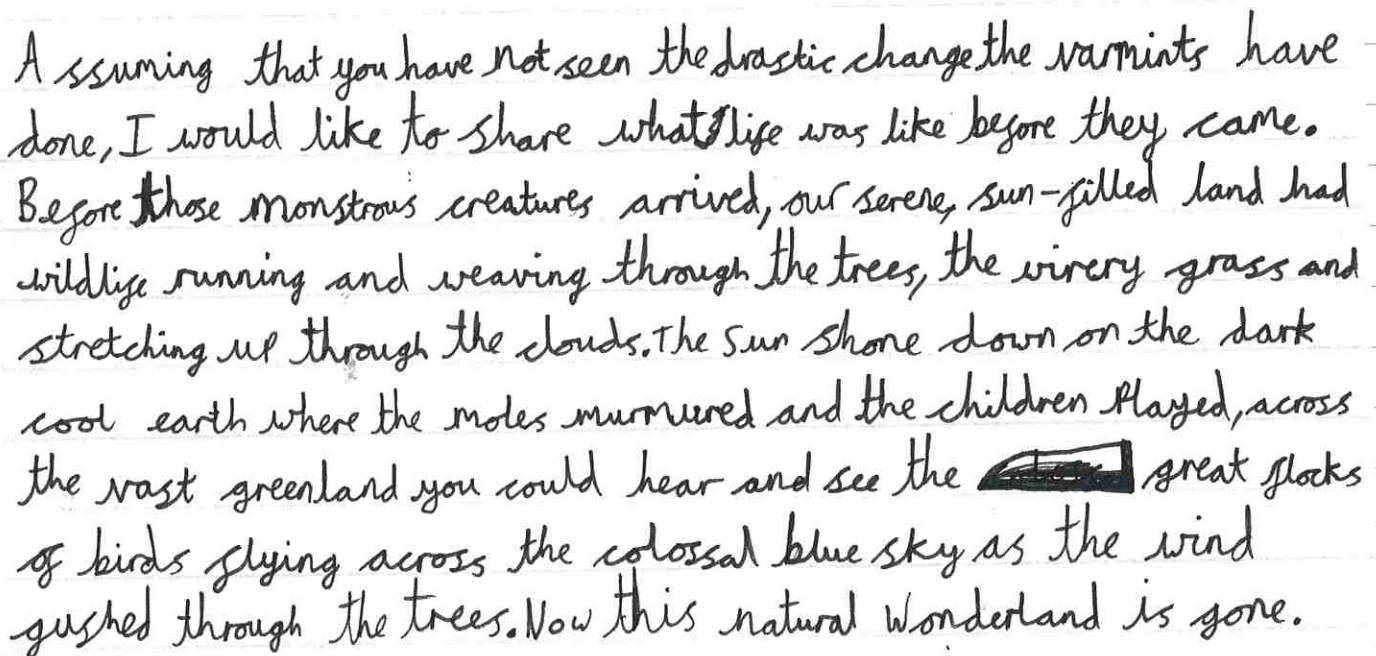 Assuming that you have not seen the drastic change the varmints have
done, I would like to share what life was like before they came.
Before those monstrous creatures arrived, our serene, sun-filled land had
wildlife running and weaving through the trees, the wirery grass and
stretching up through the clouds. The sun shone down on the dark
cool earth where the moles murmured and the children played, across
the vast greenland you could hear and see the great flocks
of birds flying across the colossal blue sky as the wind
gushed through the trees. Now this natural wonderland is gone.